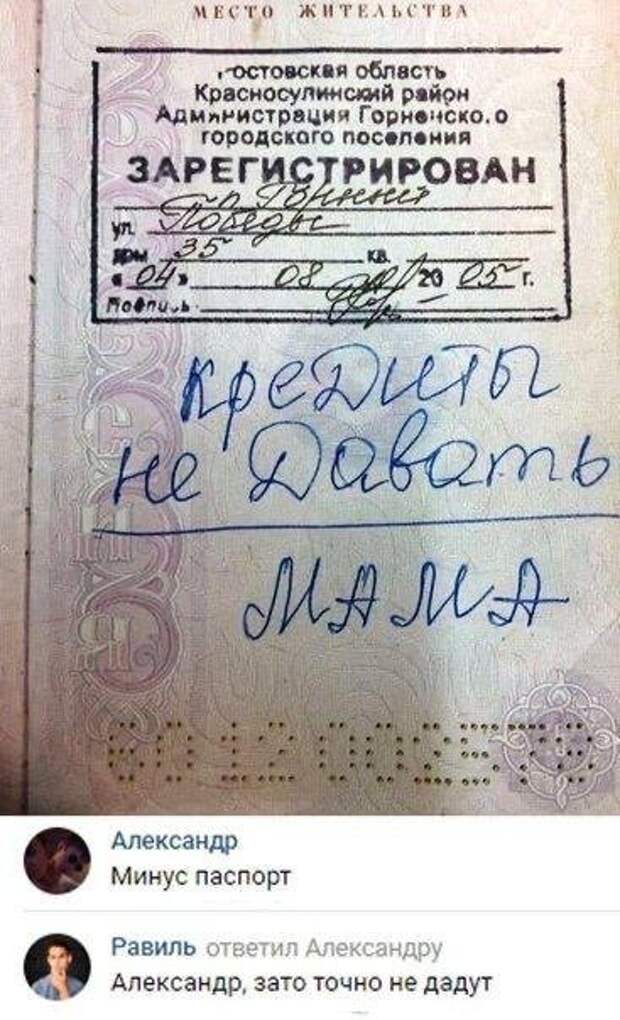 МЕСТО ЖИТЕЛЬСТВА
Ростовская область
Красносулинский район
Администрация Горненского
городского поселения
ЗАРЕГИСТРИРОВАН
п. Горный
ул. Победы
дом 35 кв.
«04» 08 2005 г.
Подпись
кредиты
не давать
МАМА
Александр
Минус паспорт
Равиль ответил Александру
Александр, зато точно не дадут